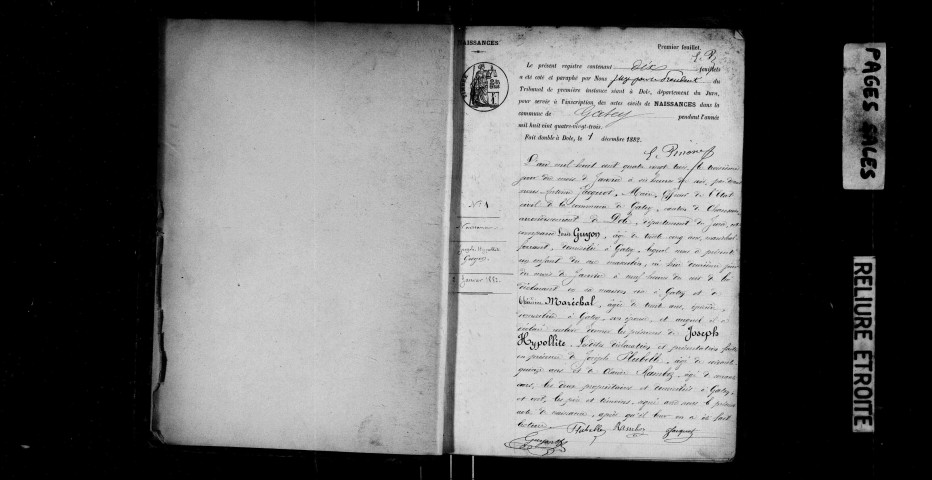 NAISSANCES
Premier feuillet.
Le présent registre contenant dix feuillets
a été coté et paraphé par Nous juge pour le Président du
Tribunal de première instance séant à Dole, département du Jura,
pour servir à l'inscription des actes civils de NAISSANCES dans la
commune de Gatey pendant l'année
mil huit cent quatre-vingt-trois.
Fait double à Dole, le 1 décembre 1882.
L'an mil huit cent quatre vingt trois, le troisième
jour du mois de Janvier à six heures du soir, par devant
nous Jacquot, Maire, Officier de l'État
civil de la commune de Gatey, canton de Chaussin
arrondissement de Dole, département du Jura, est
comparu Louis Guyon, âgé de trente cinq ans, maréchal
ferrant, domicilié à Gatey, lequel nous a présenté
un enfant du sexe masculin, né hier deuxième jour
du mois de Janvier à neuf heures du soir de lui
déclarant en sa maison sise à Gatey et de
Maréchal, âgée de trente ans,
domiciliée à Gatey, son épouse, et auquel il a
déclaré vouloir donner les prénoms de Joseph
Hypollite. Lesdites déclaration et présentation faites
en présence de Joseph âgé de soixante
quinze ans et de Ramboz, âgé de
ans, les deux propriétaires et domiciliés à Gatey,
et ont, les père et témoins, signé avec nous le présent
acte de naissance, après qu'il leur en a été fait
lecture
Ramboz Jacquot
Guyon
N° 1
Naissance
Joseph Hypollite
Guyon
2 Janvier
PAGES
RELIURE ETROITE